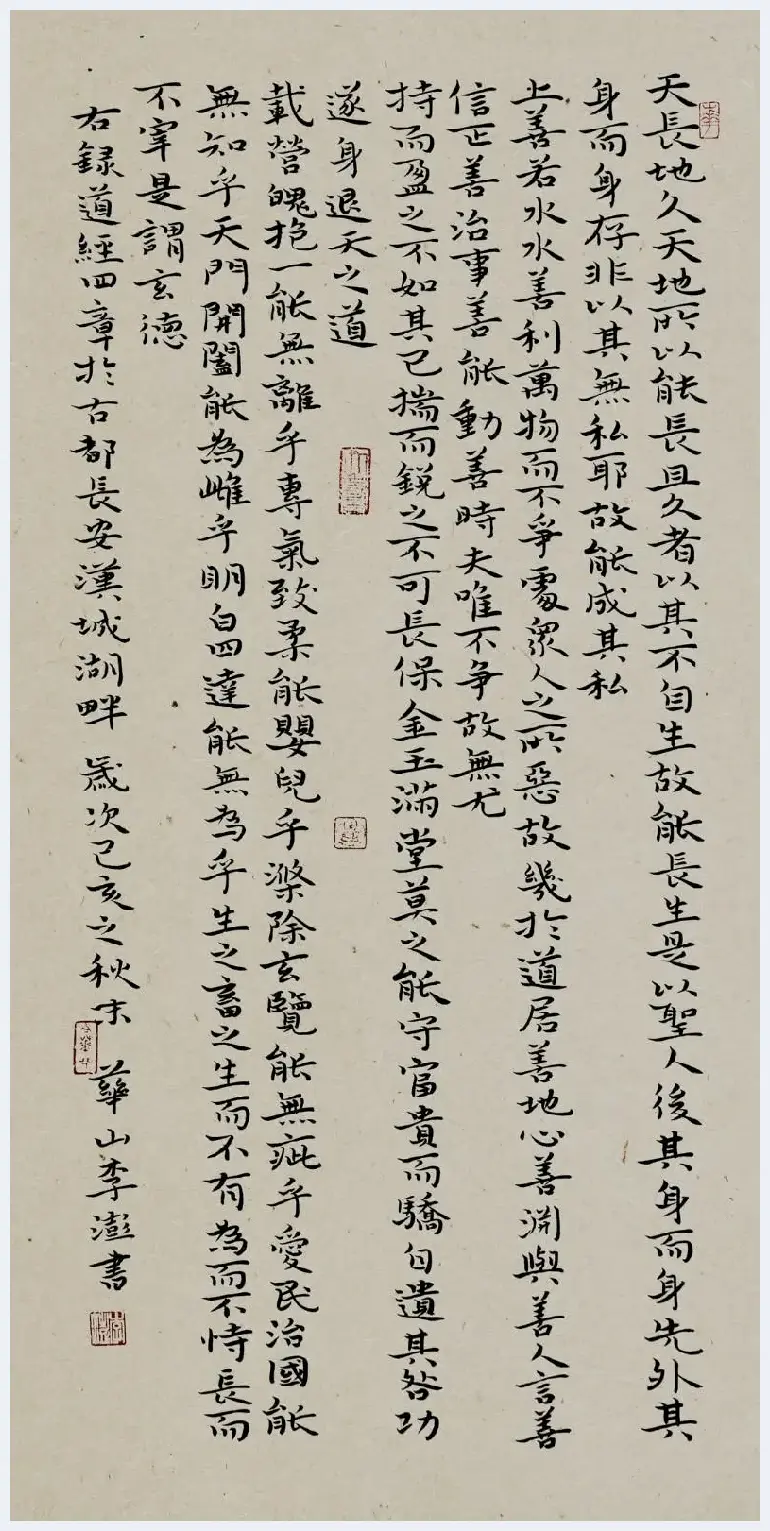 天長地久天地所以能長且久者以其不自生故能長生是以聖人後其身而身先外其
身而身存非以其無私耶故能成其私
上善若水水善利萬物而不爭處衆人之所惡故幾於道居善地心善淵與善人言善
信正善治事善能動善時夫唯不争故無尤
持而盈之不如其已揣而銳之不可長保金玉滿堂莫之能守富貴而驕自遺其咎功
遂身退天之道
載營魄抱一能無離乎專氣致柔能嬰兒乎滌除玄覽能無疵乎愛民治國能
無知乎天門開闔能為雌乎明白四達能無為乎生之畜之生而不有為而不恃長而
不宰是謂玄德
右録道經四章於古都長安漢城湖畔 歲次己亥之秋末 華山李澎書